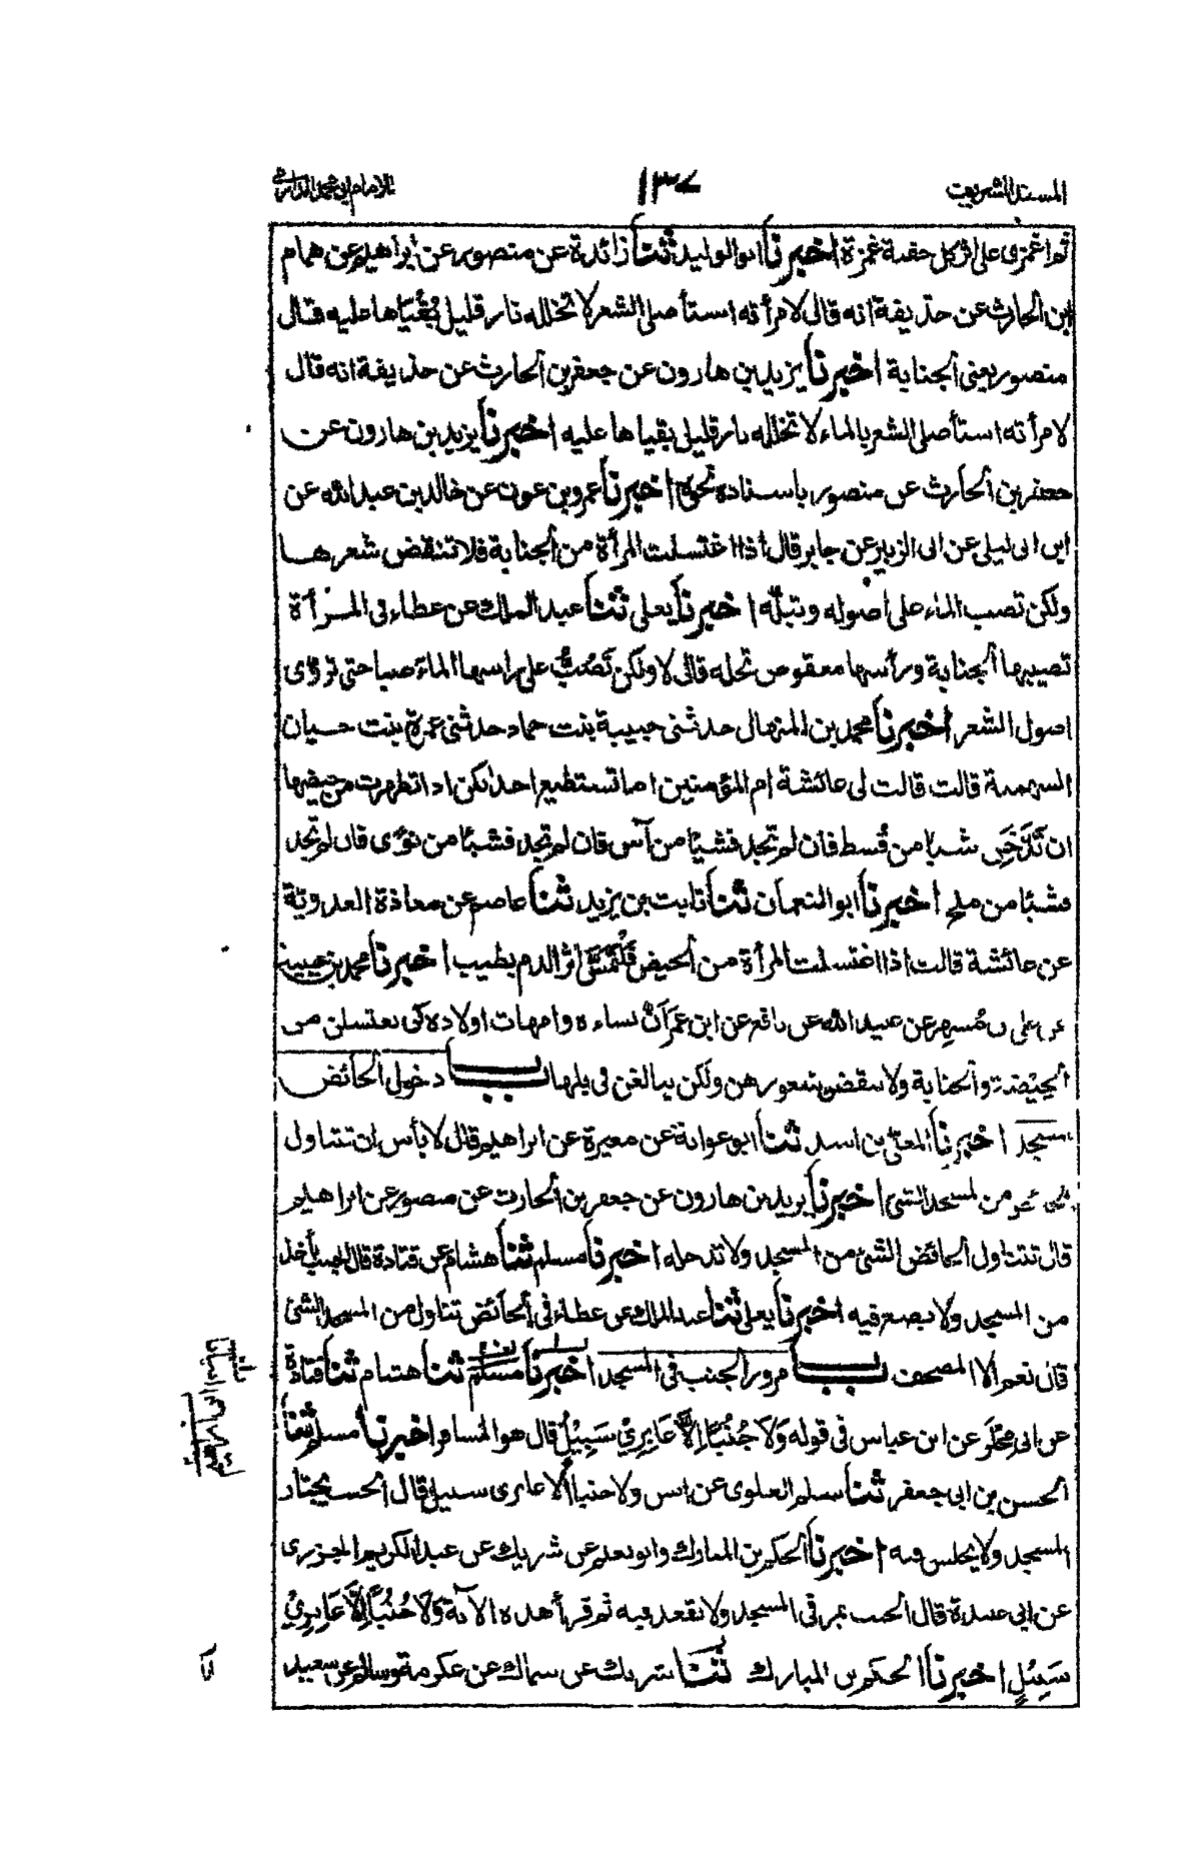 المسند الشريف
١٣٧
للامام ابي محمد الدارمي
ثم اغمزى على اثر كل حفنة غمزة اخبرنا ابو الوليد ثنا زائدة عن منصور عن ابراهيم عن همام
ابن الحارث عن حذيفة انه قال لامرأته استأصلى الشعر لا تخلله نار قليل بُقْيَاها عليه قال
منصور يعنى الجنابة اخبرنا يزيد بن هارون عن جعفر بن الحارث عن حذيفة انه قال
لامرأته استأصلى الشعر بالماء لا تخلله نار قليل بقياها عليه اخبرنا يزيد بن هارون عن
جعفر بن الحارث عن منصور باسناده نحوه اخبرنا عمرو بن عون عن خالد بن عبد الله عن
ابن ابى ليلى عن ابى الزبير عن جابر قال اذا اغتسلت المرأة من الجنابة فلا تنقض شعرها
ولكن تصب الماء على اصوله وتبلّه اخبرنا يعلى ثنا عبد الملك عن عطاء فى المرأة
تصيبها الجنابة ورأسها معقوص تحله قال لا ولكن تَصُبُّ على راسها الماء صبا حتى تروّى
اصول الشعر اخبرنا محمد بن المنهال حدثنى حبيبة بنت حماد حدثنى عمرة بنت حيان
السهمية قالت قالت لى عائشة ام المؤمنين اما تستطيع احداكن اذا تطهرت من حيضها
ان تَدَّخِنَ شيئا من قُسط فان لم تجد فشيئا من آس فان لم تجد فشيئا من نوًى فان لم تجد
فشيئا من ملح اخبرنا ابو النعمان ثنا ثابت بن يزيد ثنا عاصم عن معاذة العدويّة
عن عائشة قالت اذا اغتسلت المرأة من الحيض فَلْتُمِسَّ اثر الدم بطيب اخبرنا محمد بن
عن على بن مُسهِر عن عبيد الله عن نافع عن ابن عمر اَنَّ نساءه وامهات اولاده كن يغتسلن من
الحِيْضة والجنابة ولا ينقضن شعورهن ولكن يبالغن فى بلها باب دخول الحائض
المسجد اخبرنا المعلّى بن اسد ثنا ابو عوانة عن مغيرة عن ابراهيم قال لا بأس ان تتناول
الحائض من المسجد الشئ اخبرنا يزيد بن هارون عن جعفر بن الحارث عن منصور عن ابراهيم
قال تتناول الحائض الشئ من المسجد ولا تدخله اخبرنا مسلم ثنا هشام عن قتادة قال الجنب يأخذ
من المسجد ولا يضع فيه اخبرنا يعلى ثنا عبد الملك عن عطاء فى الحائض تناول من المسجد الشئ
قال نعم الا المصحف باب مرور الجنب فى المسجد اخبرنا مسلم ثنا هشام ثنا قتادة
عن ابى مجلز عن ابن عباس فى قوله وَلَا جُنُبًا اِلَّا عَابِرِيْ سَبِيْلٍ قال هو المسافر اخبرنا مسلم ثنا
الحسن بن ابى جعفر ثنا سلم العلوى عن انس ولا جنبا الا عابرى سبيل قال الجنب يجتاز
المسجد ولا يجلس فيه اخبرنا الحكم بن المبارك وابو نعيم عن شريك عن عبد الكريم الجزرى
عن ابى عبيدة قال الجنب يمر فى المسجد ولا يقعد فيه ثم قرأ هذه الآية وَلَا جُنُبًا اِلَّا عَابِرِيْ
سَبِيْلٍ اخبرنا الحكم بن المبارك ثنا شريك عن سماك عن عكرمة وسالم عن سعيد